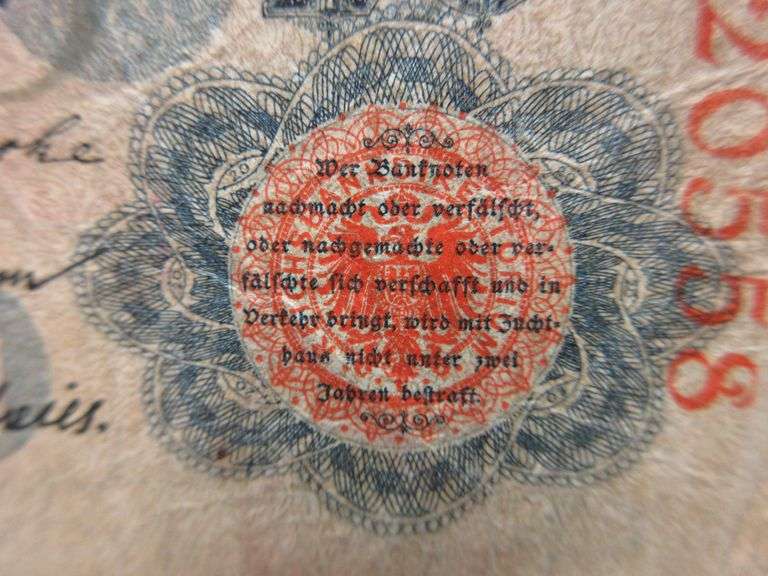 Wer Banknoten
nachmacht oder verfälscht,
oder nachgemachte oder ver-
fälschte sich verschafft und in
Verkehr bringt, wird mit Zucht-
haus nicht unter zwei
Jahren bestraft.
205558